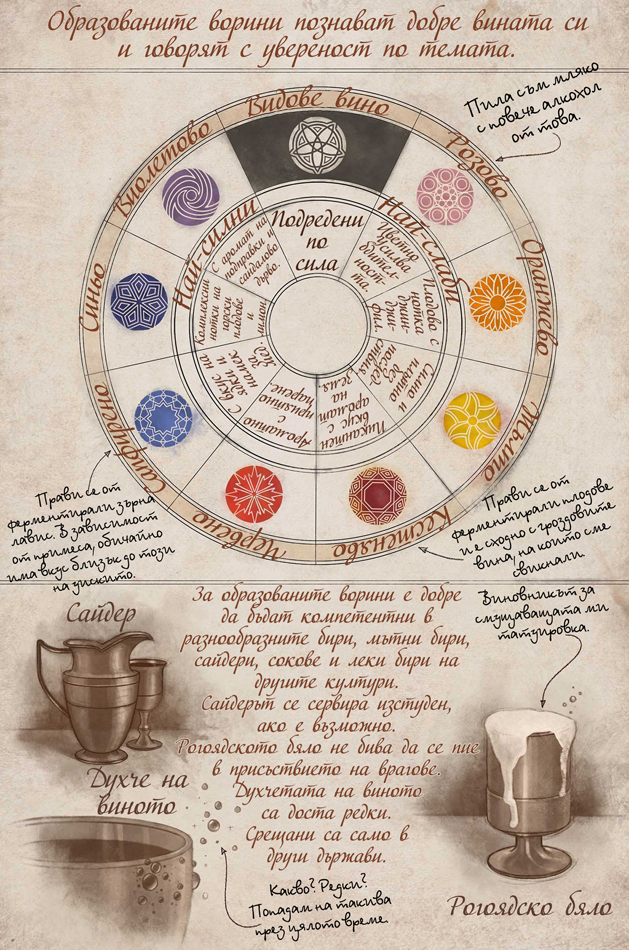 Образованите ворини познават добре вината си
и говорят с увереност по темата.
Пила съм мляко
с повече алкохол
от това.
Видове вино
Розово
Оранжево
Жълто
Кестеняво
Червено
Сапфирено
Синьо
Виолетово
Подредени
по
сила
Най-слаби
Най-силни
Цветно
Усилва
бдител-
ност-
та.
Плодово с
нотки
джин-
джи-
фил.
Силно и
плътно
без
послед-
ствия.
Пикантен
вкус с
аромат
на
земя.
Ароматно
с
приятно
парене.
С вкус на
ядки и
намек
за
мед.
Комплексни
нотки на
горски
плодове
и
цитрони.
С аромат на
подправки и
сандалово
дърво.
Прави се от
ферментирали зърна
лавис. В зависимост
от примеса, обичайно
има вкус близък до този
на уискито.
Прави се от
ферментирали плодове
и е сходно с гроздовите
вина, на които сме
свикнали.
Сайдер
За образованите ворини е добре
да бъдат компетентни в
разнообразните бири, мътни бири,
сайдери, сокове и леки бири на
другите култури.
Сайдерът се сервира изстуден,
ако е възможно.
Рогоядското бяло не бива да се пие
в присъствието на врагове.
Духчетата на виното
са доста редки.
Срещани са само в
други държави.
Виновникът за
смущаващата ми
татуировка.
Духче на
виното
Какво? Редки?
Попадам на такива
през цялото време.
Рогоядско бяло